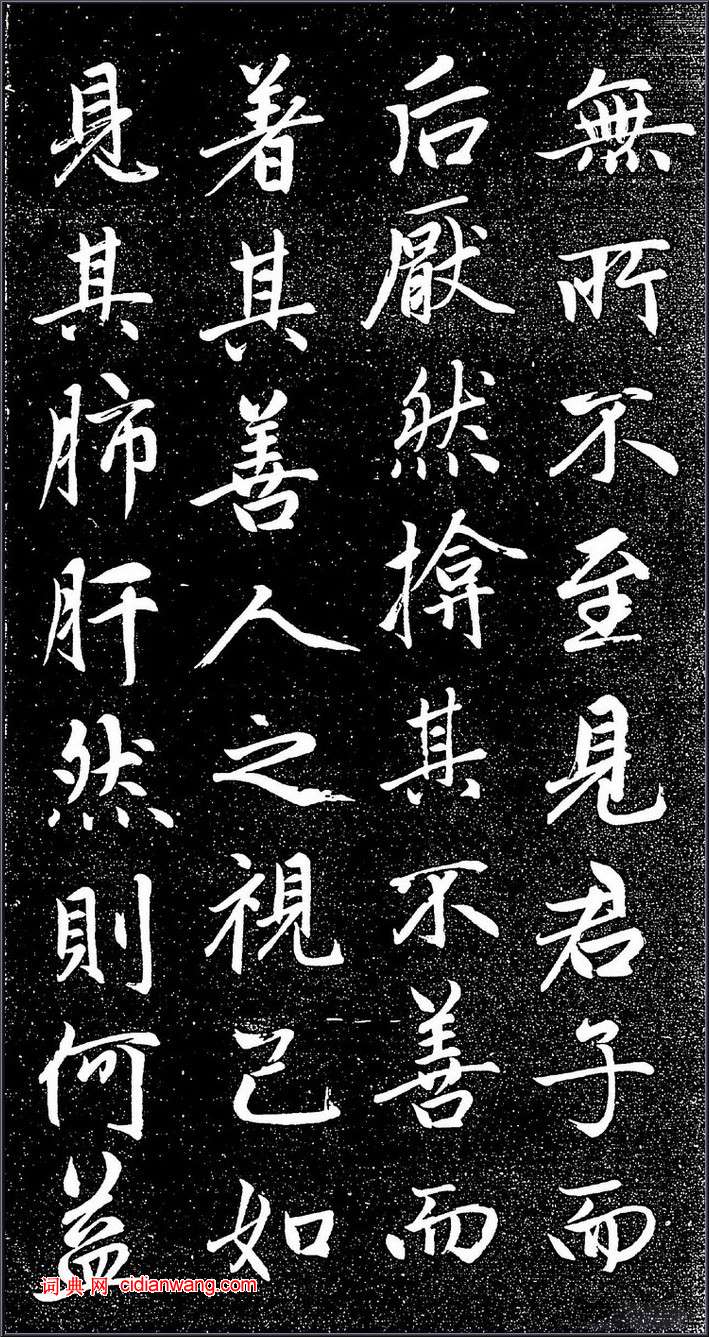 無所不至見君子而
后厭然揜其不善而
著其善人之視己如
見其肺肝然則何益
词典网 cidianwang.com